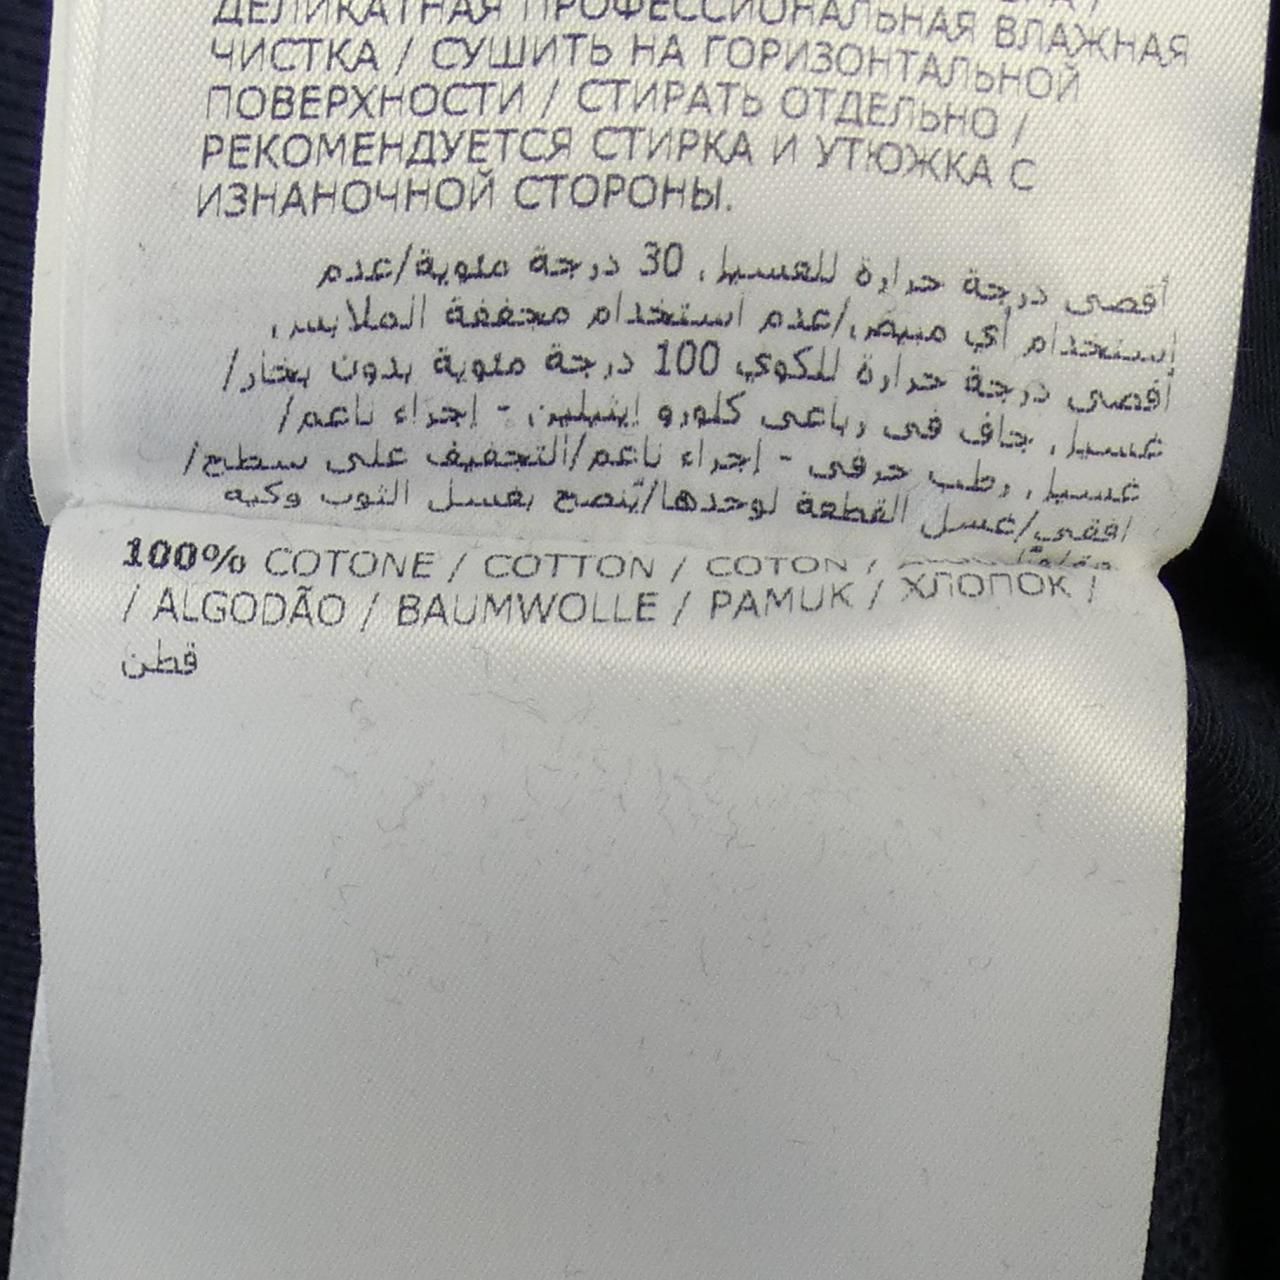 ДЕЛИКАТНАЯ ПРОФЕССИОНАЛЬНАЯ ВЛАЖНАЯ
ЧИСТКА / СУШИТЬ НА ГОРИЗОНТАЛЬНОЙ
ПОВЕРХНОСТИ / СТИРАТЬ ОТДЕЛЬНО /
РЕКОМЕНДУЕТСЯ СТИРКА И УТЮЖКА С
ИЗНАНОЧНОЙ СТОРОНЫ.
أقصى درجة حرارة للغسيل 30 درجة مئوية/عدم
إستخدام أي مبيض/عدم استخدام مجففة الملابس
أقصى درجة حرارة للكوي 100 درجة مئوية بدون بخار/
غسيل جاف في رباعي كلورو إيثيلين - إجراء ناعم/
غسيل رطب حرفي - إجراء ناعم/التجفيف على سطح/
افقي/غسل القطعة لوحدها/يُنصح بغسل الثوب وكيه
100% COTONE / COTTON / COTON /
/ ALGODÃO / BAUMWOLLE / PAMUK / ХЛОПОК /
قطن